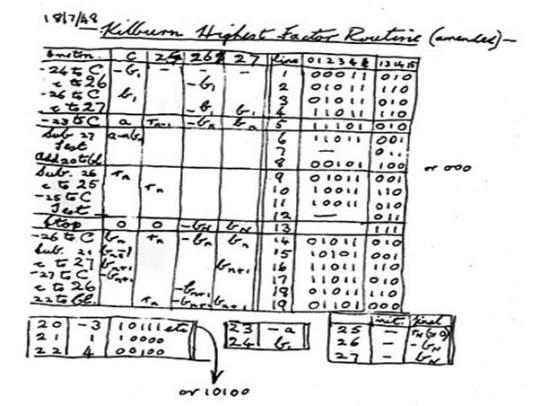 18/7/48
Kilburn Highest Factor Routine (amended)
Instrn. C 25 26 27 line 0 1 2 3 4 5 13 14 15
-24 to C -b₁ - - - 1 00011 010
c to 26 -b₁ 2 01011 110
-26 to C b₁ 3 01011 010
c to 27 -b₁ b₁ 4 11011 110
-23 to C a rₙ₋₁ -bₙ bₙ 5 11101 010
Sub. 27 a-bₙ 6 11011 001
Test 7 — 011
Add 20 to bl. 8 00101 100
Sub. 26 rₙ 9 01011 001
c to 25 rₙ 10 10011 110
-25 to C 11 10011 010
Test 12 — 011
Stop 0 0 -bN bN 13 111
-26 to C bₙ rₙ -bₙ bₙ 14 01011 010
Sub. 21 bₙ-1 15 10101 001
c to 27 bₙ₊₁ bₙ₊₁ 16 11011 110
-27 to C -bₙ₊₁ 17 11011 010
c to 26 -bₙ₊₁ 18 01011 110
22 to bl. rₙ -bₙ₊₁ bₙ₊₁ 19 01101 000
or 000
20 -3 10111 etc
21 1 10000
22 4 00100
23 -a
24 b₁
init. final
25 — rN (≥0)
26 — -bN
27 — bN
or 10100